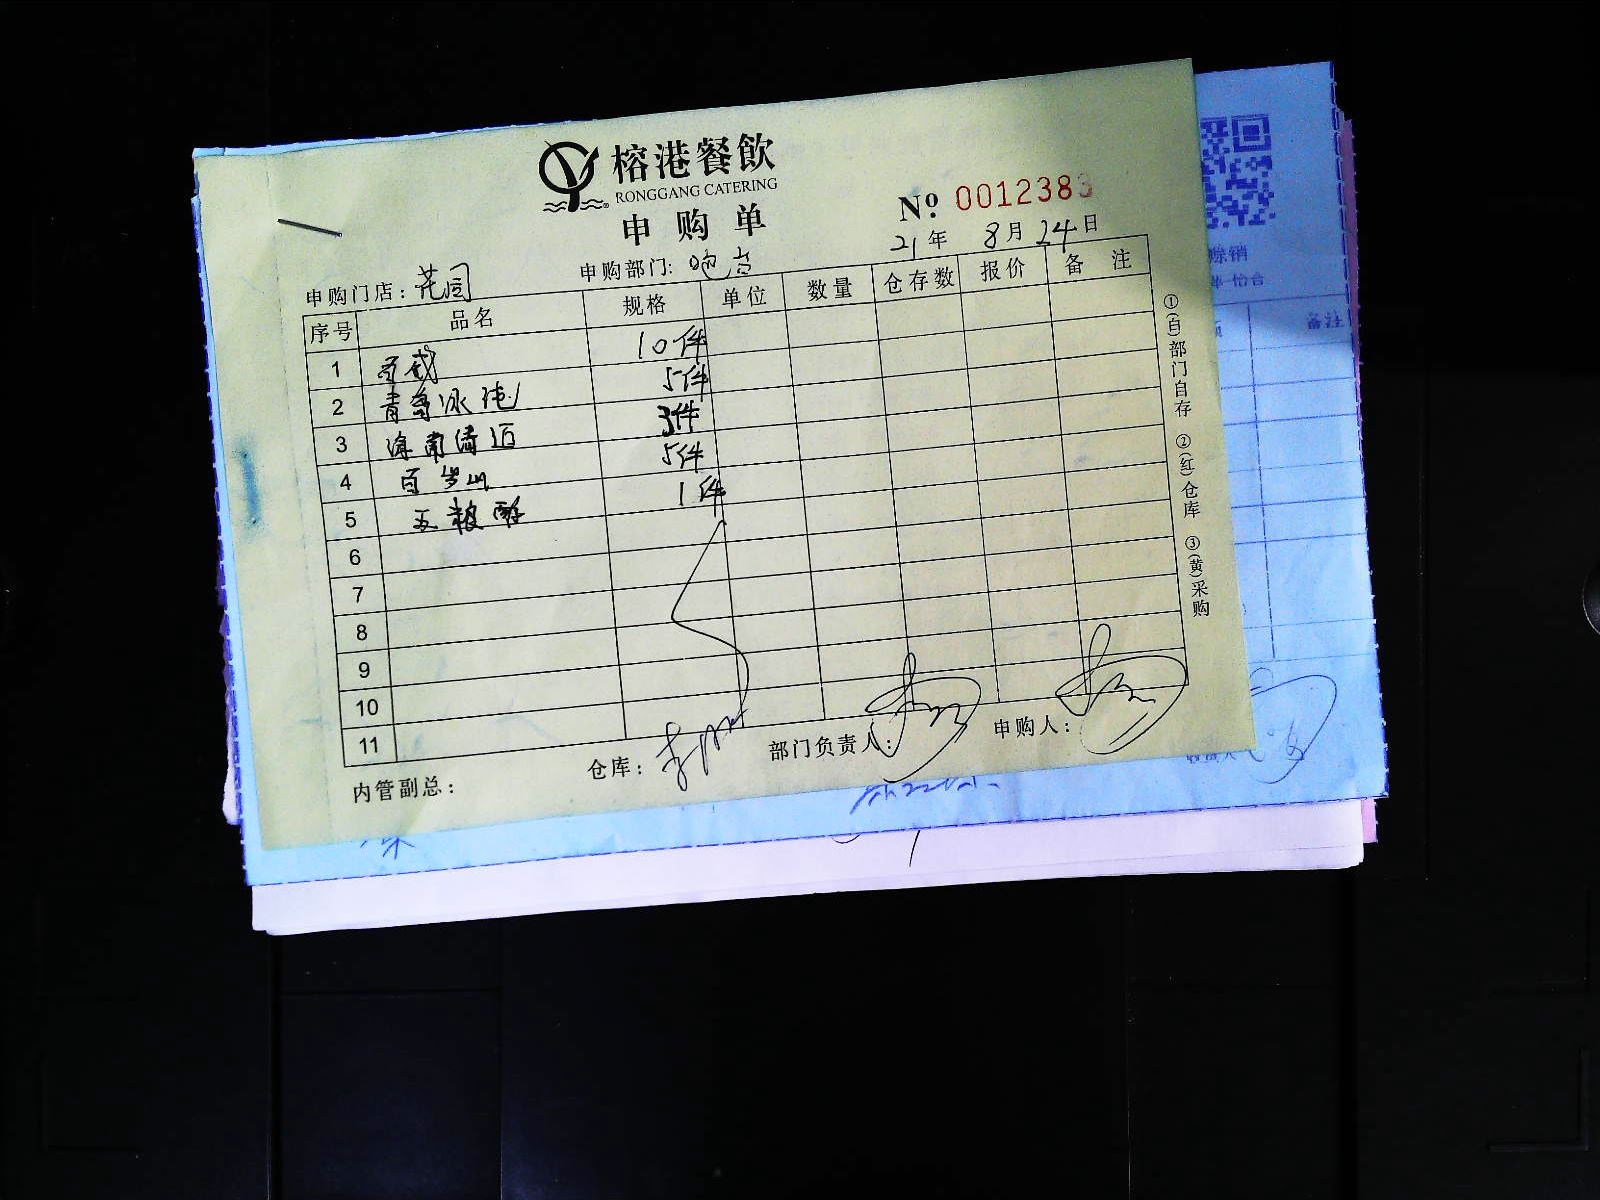 榕港餐飲
RONGGANG CATERING
申购单
Nº 0012383
21年 8月 24日
申购门店：花园 申购部门：吧台
序号 品名 规格 单位 数量 仓存数 报价 备注
1 百威 10件
2 青岛冰纯 5件
3 海南清 3件
4 百岁山 5件
5 五粮醇 1件
6
7
8
9
10
11
内管副总： 仓库：李 部门负责人： 申购人：
①(白)部门自存 ②(红)仓库 ③(黄)采购
赊销
怡台
备注